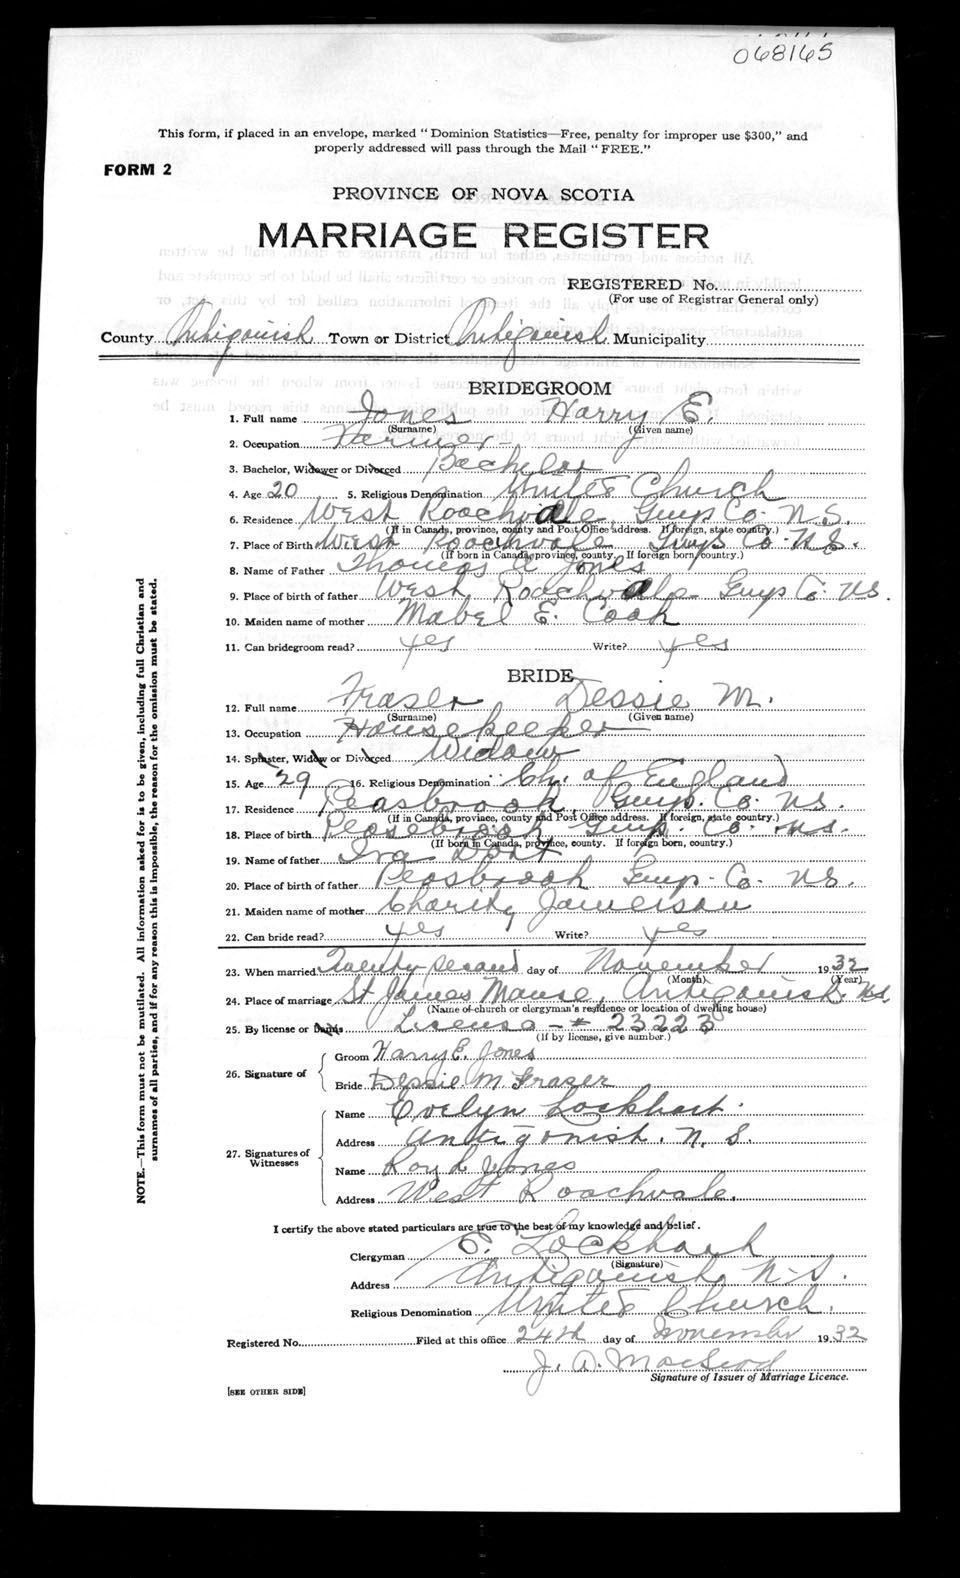 068165
This form, if placed in an envelope, marked "Dominion Statistics—Free, penalty for improper use $300," and
properly addressed will pass through the Mail "FREE."
FORM 2
PROVINCE OF NOVA SCOTIA
MARRIAGE REGISTER
REGISTERED No.
(For use of Registrar General only)
County Antigonish Town or District Antigonish Municipality
BRIDEGROOM
1. Full name Jones Harry E.
(Surname) (Given name)
2. Occupation Farmer
3. Bachelor, Widower or Divorced Bachelor
4. Age 20 5. Religious Denomination United Church
6. Residence West Roachvale, Guys Co. N.S.
(If in Canada, province, county and Post Office address. If foreign, state country.)
7. Place of Birth West Roachvale Guys Co. N.S.
(If born in Canada, province, county. If foreign born, country.)
8. Name of Father Thomas A Jones
9. Place of birth of father West Roachvale Guys Co. N.S.
10. Maiden name of mother Mabel E. Cook
11. Can bridegroom read? yes Write? yes
BRIDE
12. Full name Fraser Dessie M.
(Surname) (Given name)
13. Occupation Housekeeper
14. Spinster, Widow or Divorced Widow
15. Age 29 16. Religious Denomination Ch. of England
17. Residence Peasbrook, Guys. Co. N.S.
(If in Canada, province, county and Post Office address. If foreign, state country.)
18. Place of birth Peasebrook Guys. Co. N.S.
(If born in Canada, province, county. If foreign born, country.)
19. Name of father Ira Dort
20. Place of birth of father Peasbrook Guys. Co. N.S.
21. Maiden name of mother Charity Jamerson
22. Can bride read? yes Write? yes
23. When married Twenty second day of November 1932
(Month) (Year)
24. Place of marriage St James Manse, Antigonish. N.S.
(Name of church or clergyman's residence or location of dwelling house)
25. By license or Banns License - # 23223
(If by license, give number.)
26. Signature of
Groom Harry E. Jones
Bride Dessie. M Fraser
27. Signatures of Witnesses
Name Evelyn Lockhart.
Address Antigonish. N.S.
Name Roy L Jones
Address West Roachvale.
I certify the above stated particulars are true to the best of my knowledge and belief.
Clergyman E. Lockhart
(Signature)
Address Antigonish N.S.
Religious Denomination United Church.
Registered No. Filed at this office 24th day of November 1932
J. A. MacLeod
Signature of Issuer of Marriage Licence.
[SEE OTHER SIDE]
NOTE.—This form must not be mutilated. All information asked for is to be given, including full Christian and
surnames of all parties, and if for any reason this is impossible, the reason for the omission must be stated.